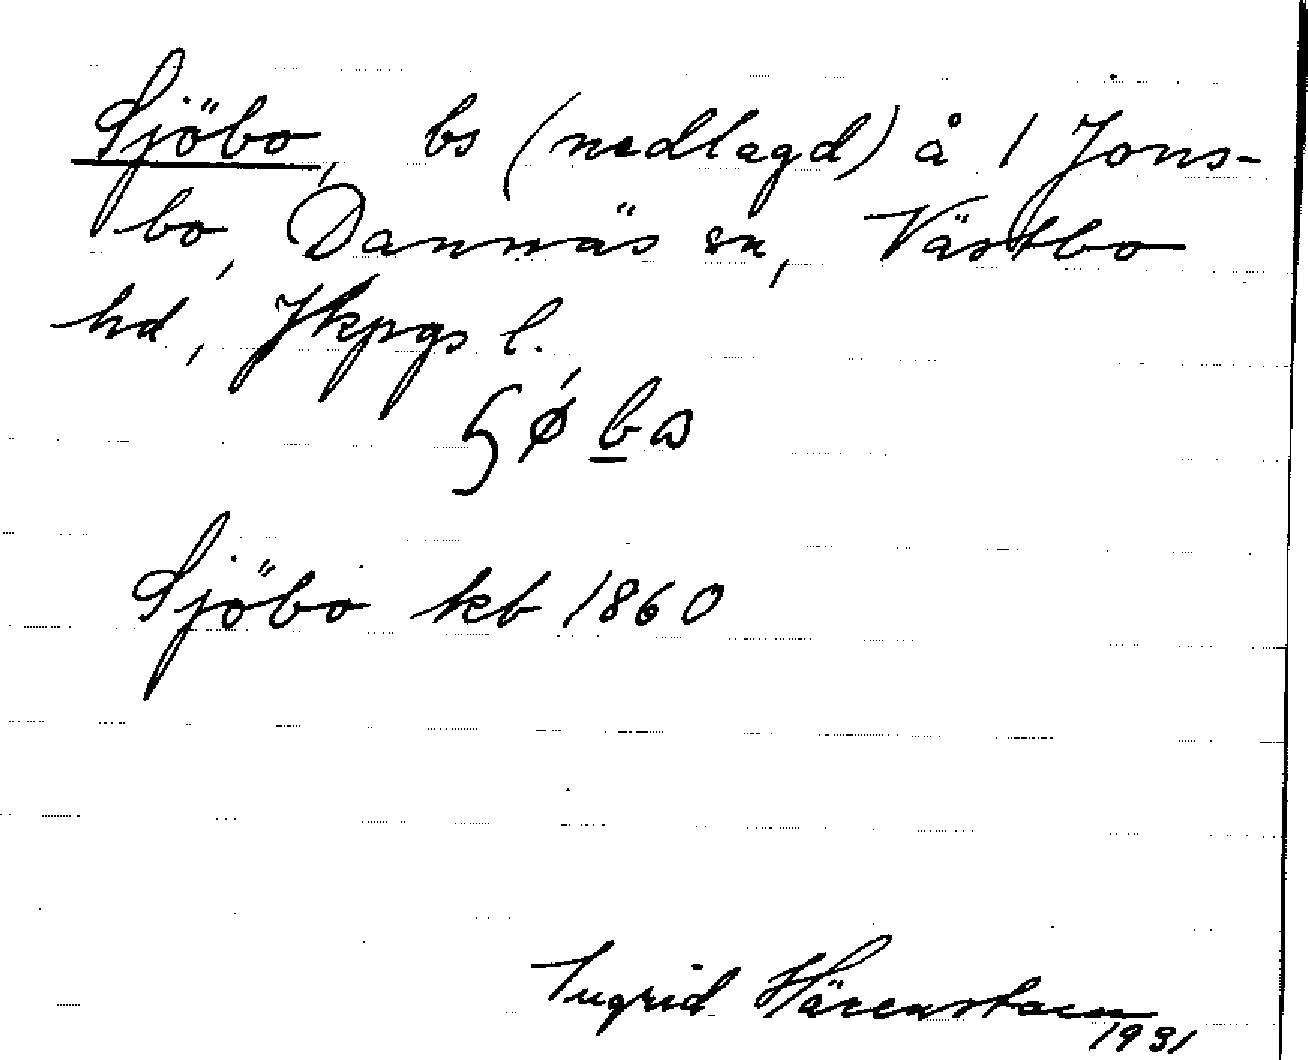 Sjöbo, bs (nedlagd) å 1 Jons-
bo, Dannäs sn, Västbo
hd, Jkpgs l.
Sjöbo kb 1860
Ingrid Härenstam
1931